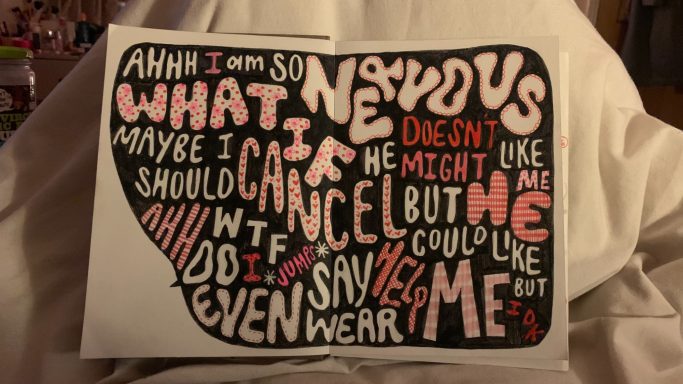 AHHH I am SO NERVOUS
WHAT IF HE DOESNT LIKE ME
MAYBE I SHOULD CANCEL
MIGHT
BUT HE COULD LIKE ME
BUT IDK
AHHH WTF
DO I *JUMPS*
EVEN SAY
WEAR
HELP ME